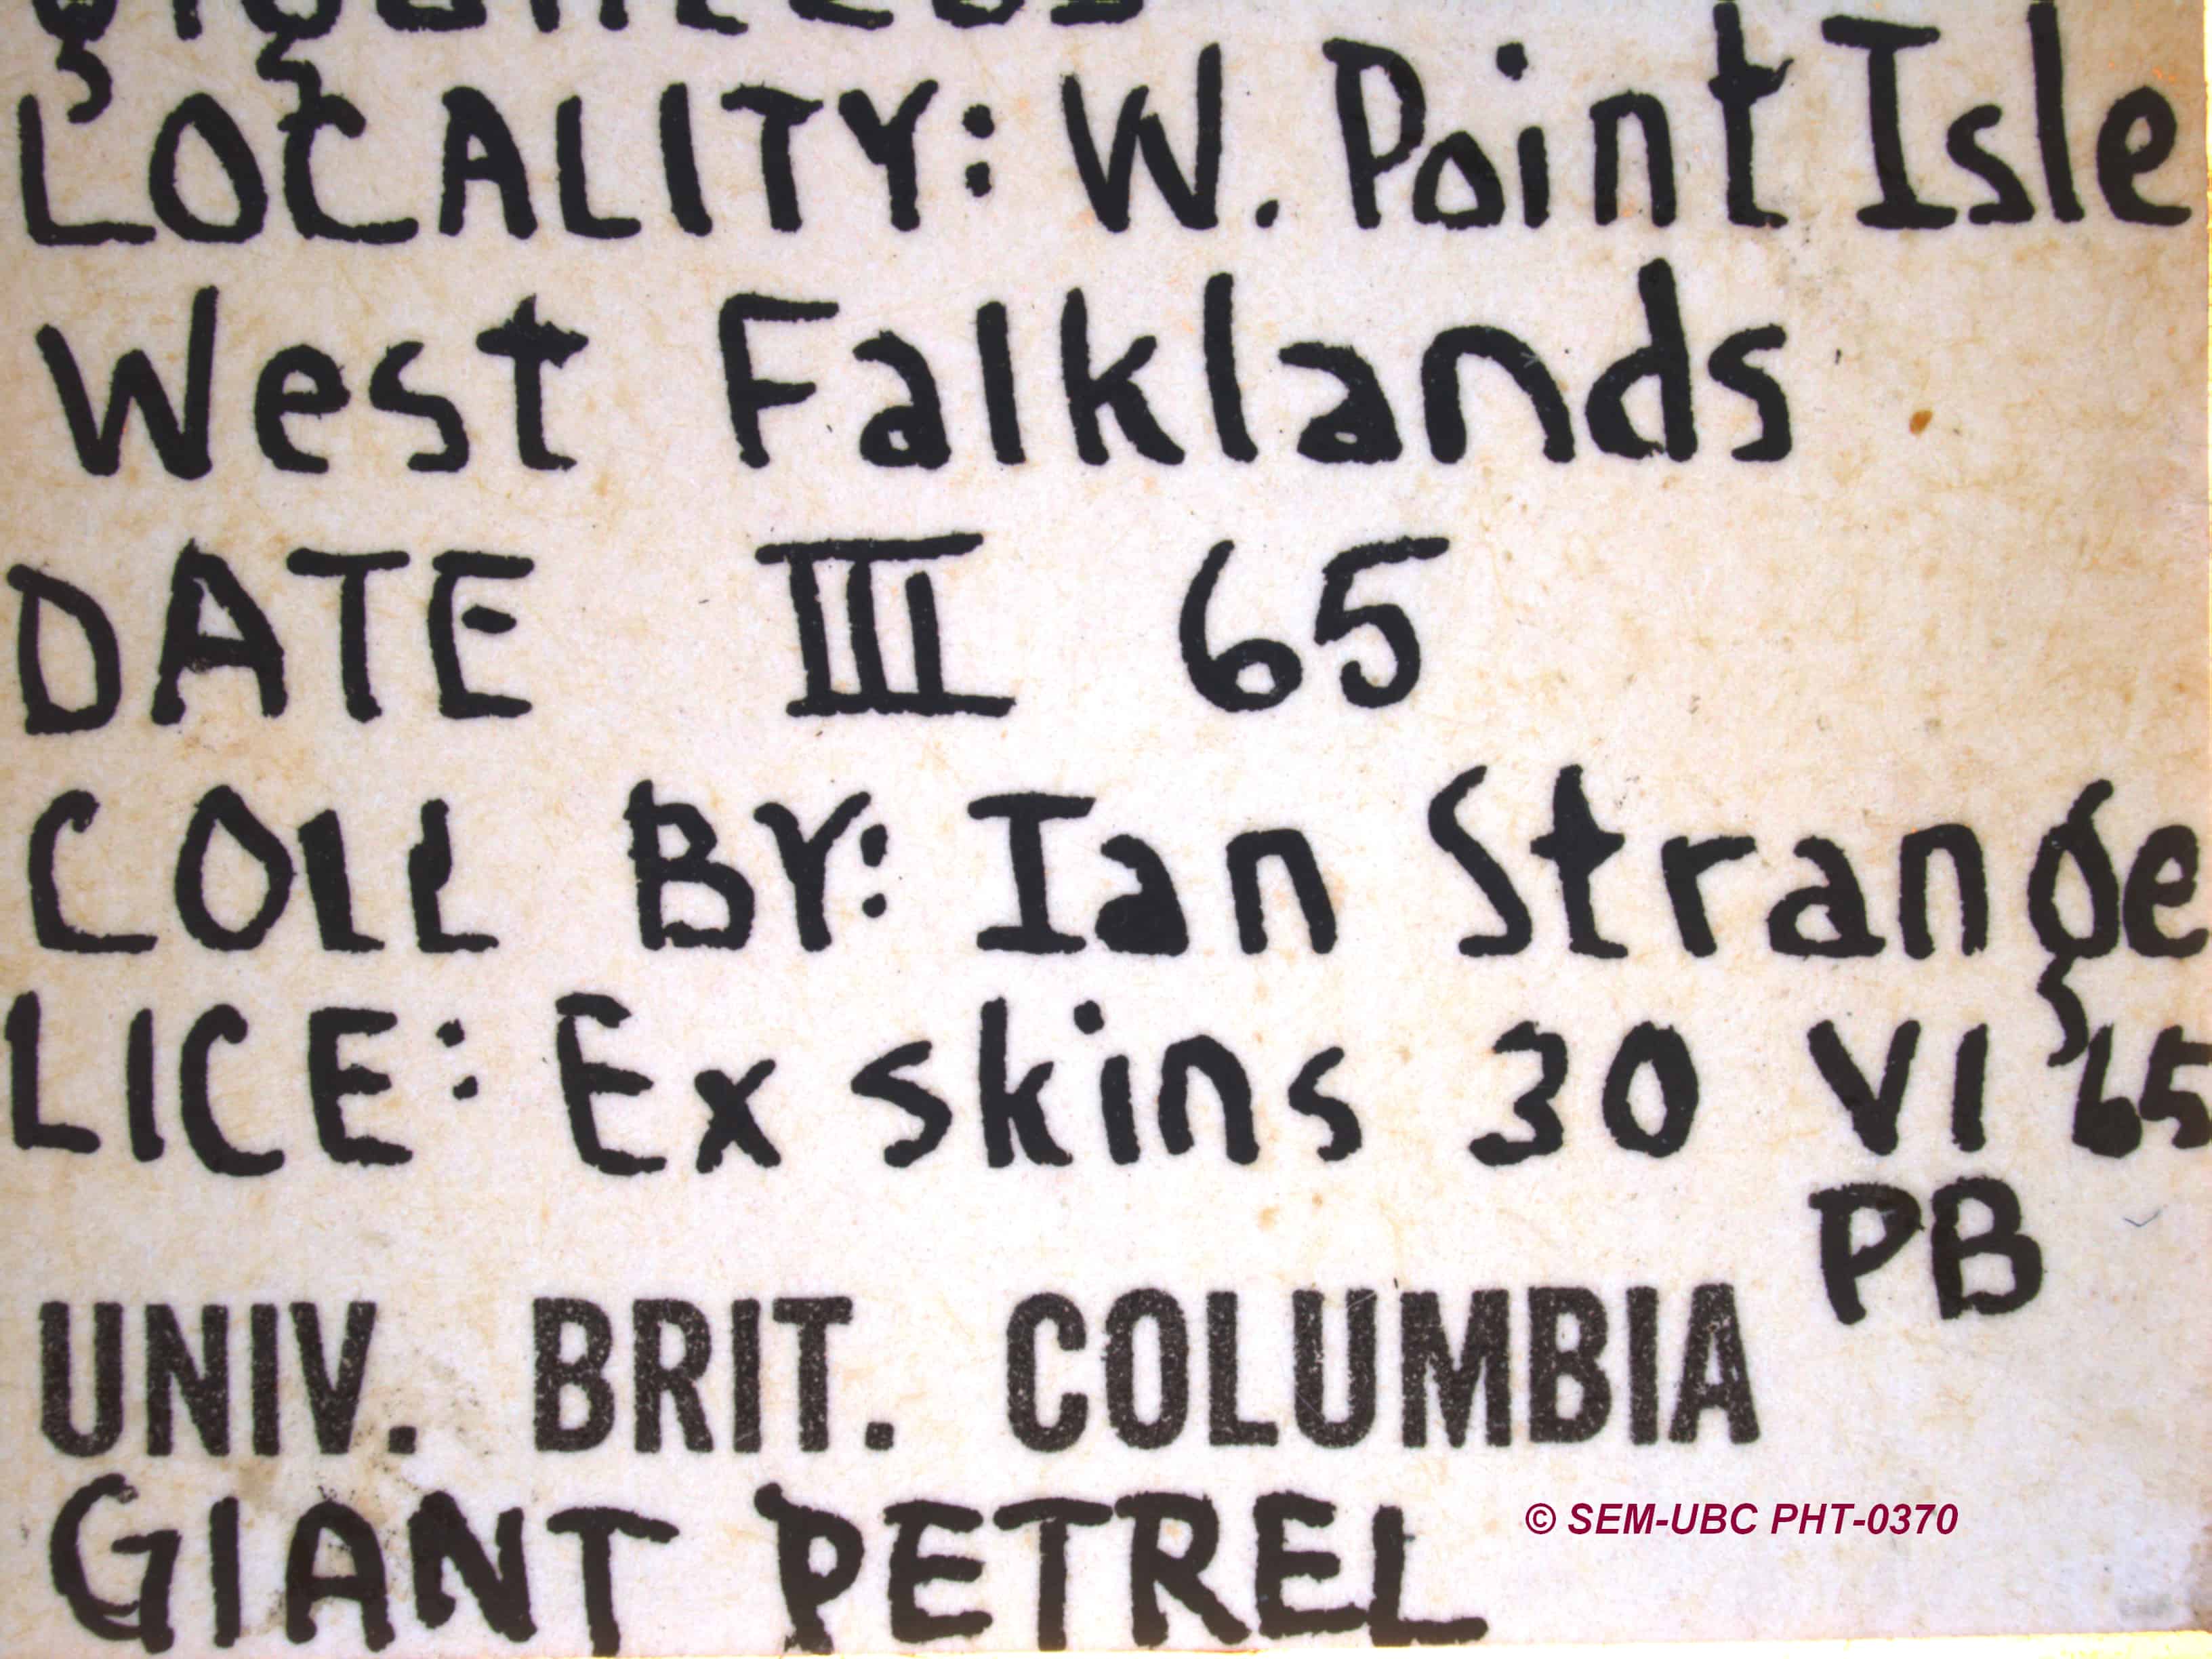 LOCALITY: W. Point Isle
West Falklands
DATE III 65
COLL BY: Ian Strange
LICE: Ex skins 30 VI '65
PB
UNIV. BRIT. COLUMBIA
GIANT PETREL
© SEM-UBC PHT-0370